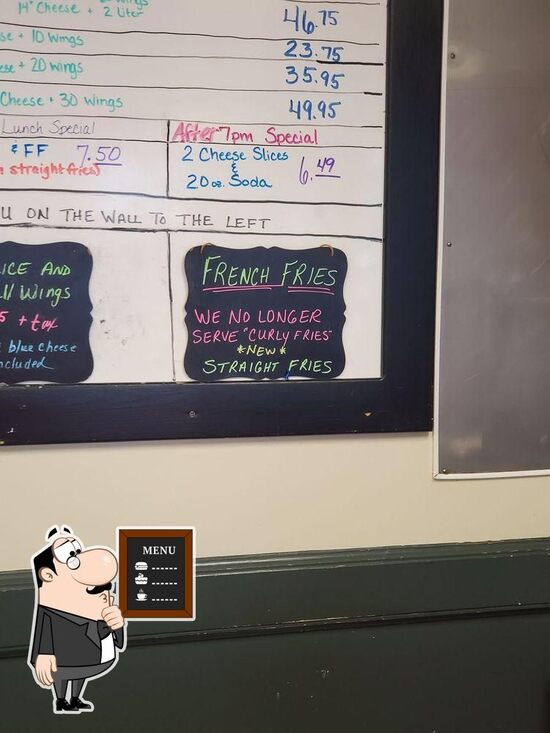 14" Cheese + 2 Liter 46.75
+ 10 Wings 23.75
+ 20 wings 35.95
Cheese + 30 Wings 49.95
Lunch Special
& FF 7.50
straight fries)
After 7pm Special
2 Cheese Slices
&
20 oz. Soda
6.49
U ON THE WALL TO THE LEFT
AND
Wings
+ tax
blue cheese
FRENCH FRIES
WE NO LONGER
SERVE "CURLY FRIES"
*NEW*
STRAIGHT FRIES
MENU